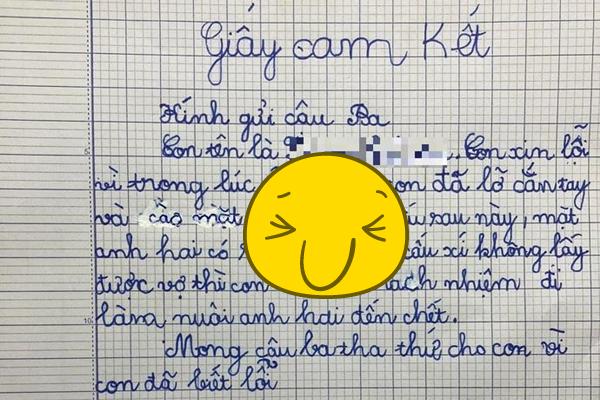 Giấy cam kết
Kính gửi câu Ba
Con tên là Con xin lỗi
vì trong lúc con đã lỡ cắn tay
và cào mặt sau này, mặt
anh hai có xấu xí không lấy
được vợ thì con trách nhiệm đi
làm nuôi anh hai đến chết.
Mong câu ba tha thứ cho con vì
con đã biết lỗi